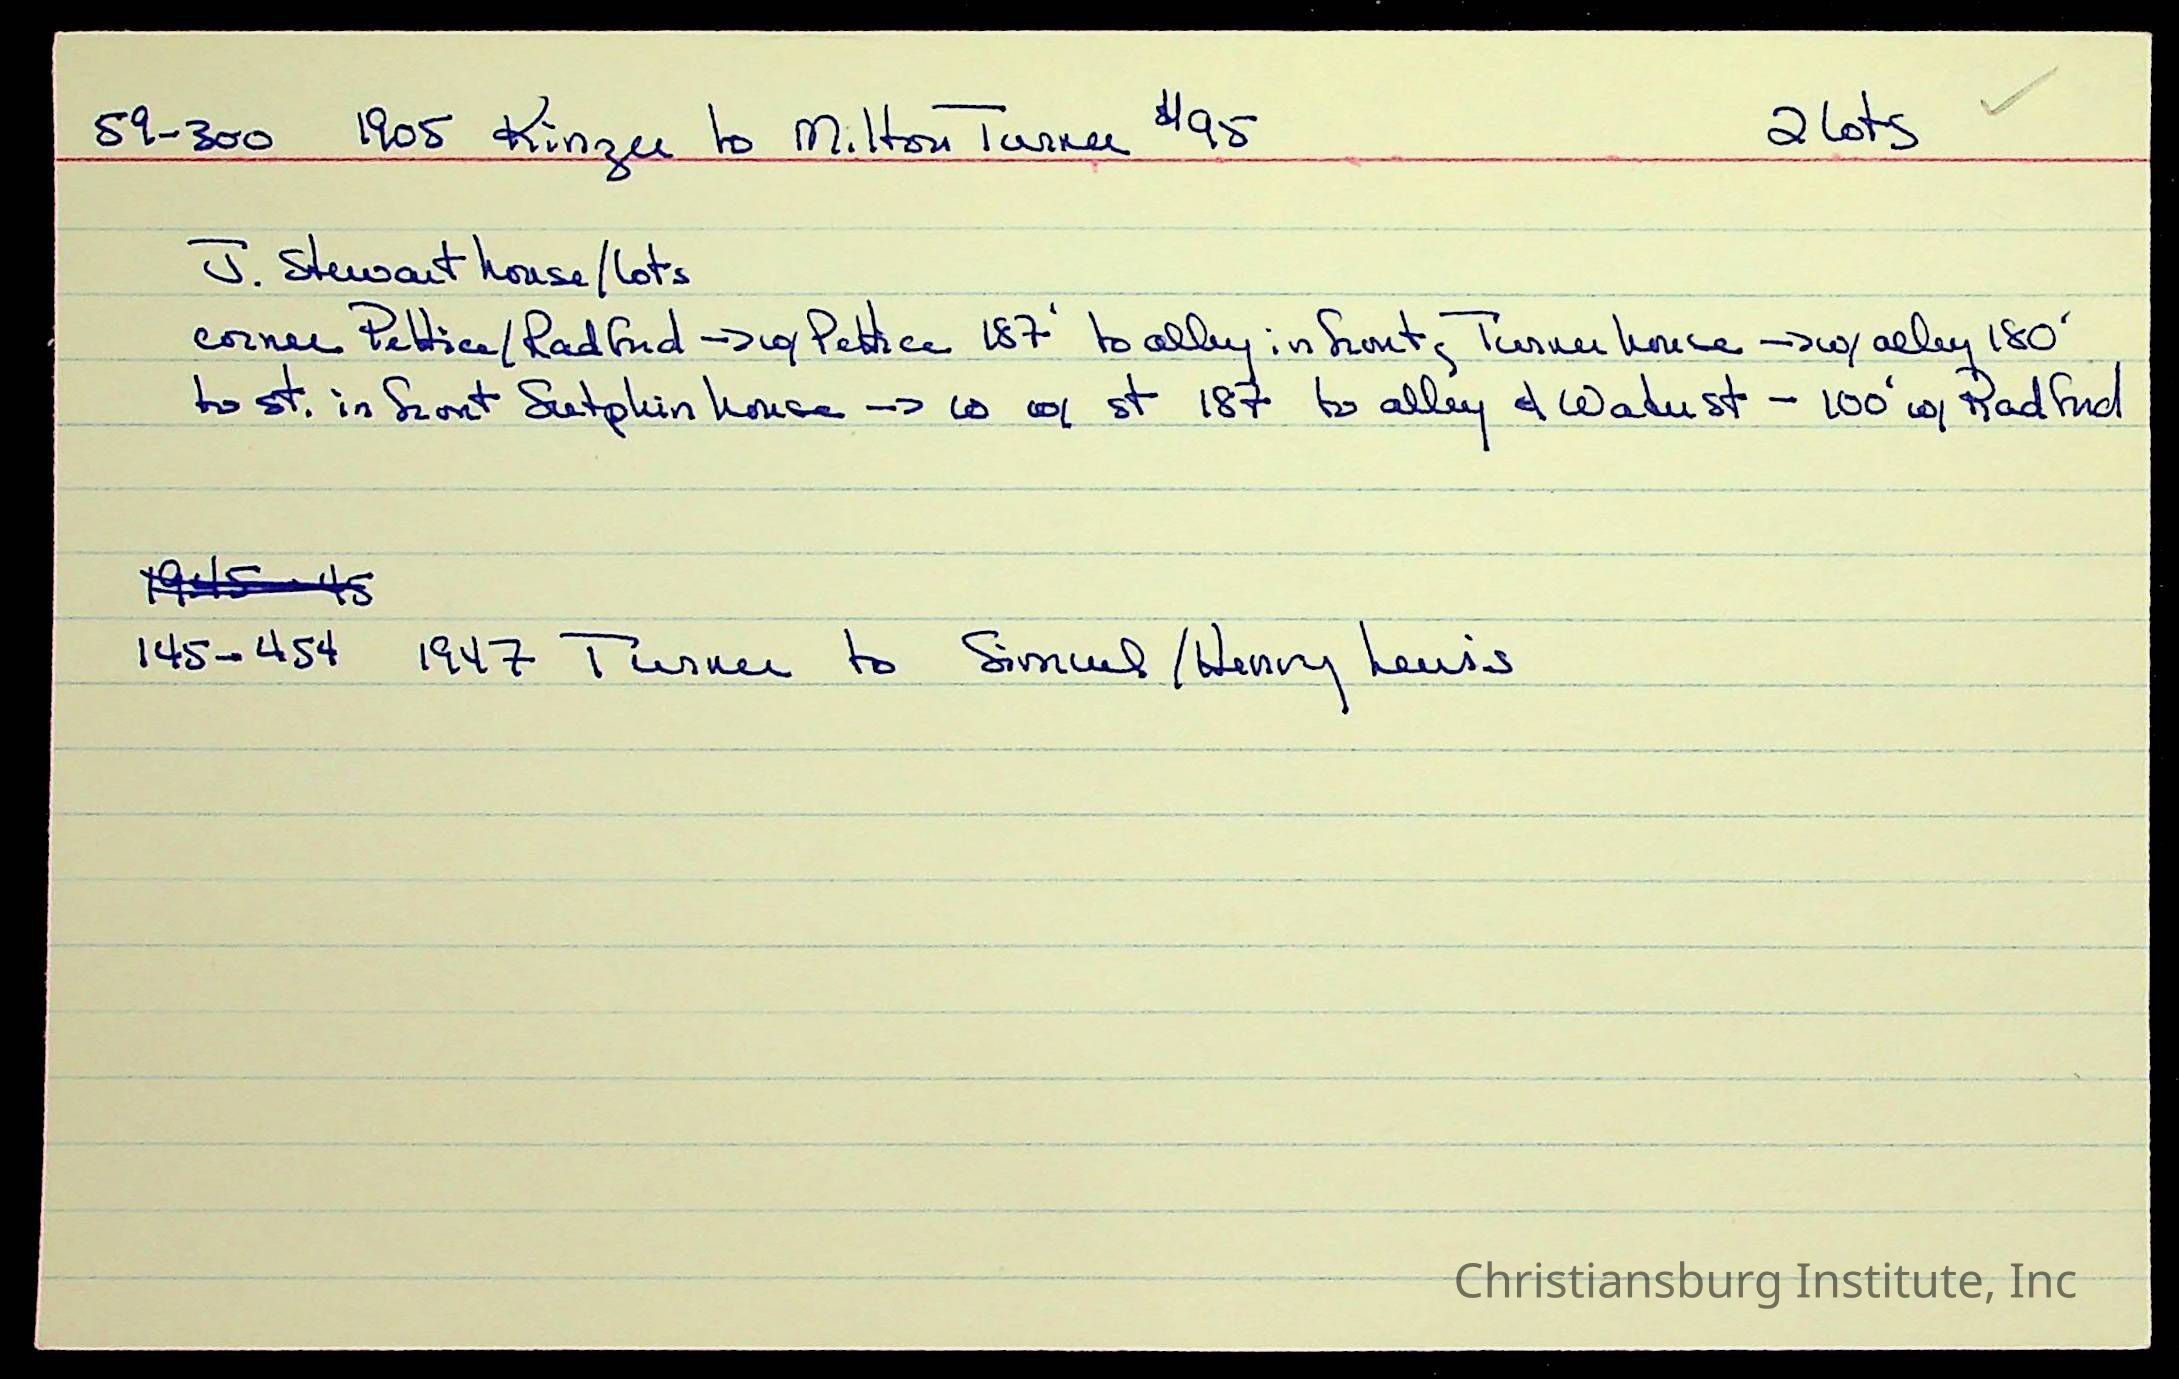 59-300 1905 Kinzer to Milton Turner $95 2 lots ✓
J. Stewart house/lots
corner Pettice/Radford → w/ Pettice 187' to alley in front, Turner house → w/ alley 180'
to st. in front Sutphin house → w w/ st 187 to alley & Water st - 100' w/ Radford
1945-45
145-454 1947 Turner to Simuel/Henry Lewis
Christiansburg Institute, Inc